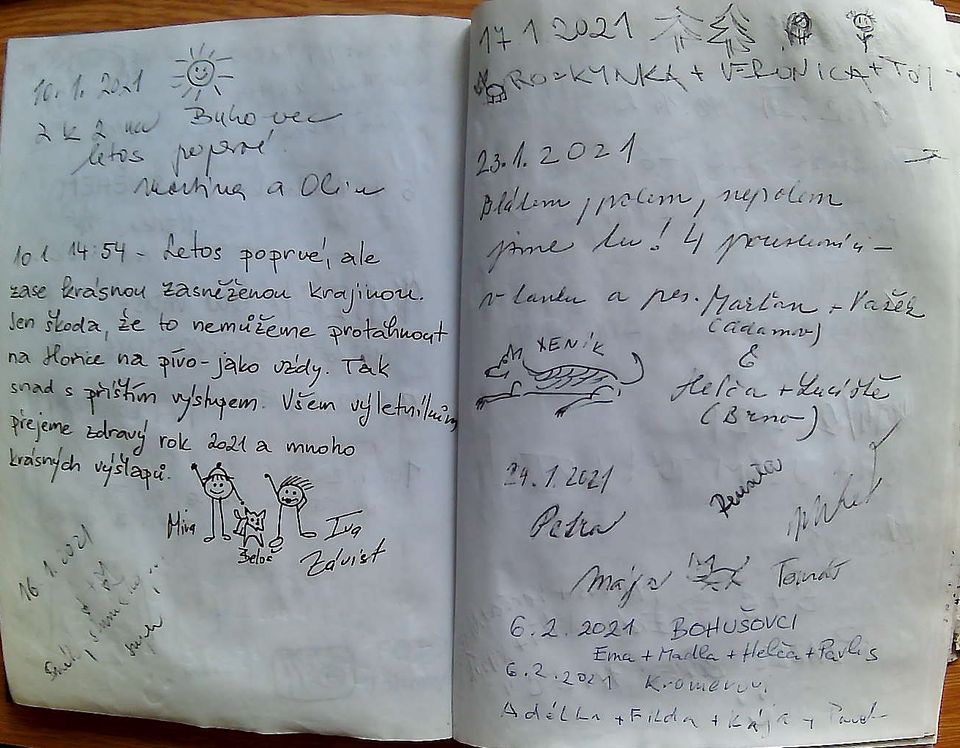 10.1.2021
2 k 2 na Bukovec
letos poprvé
Martina a Olin
10 1. 14:54 - Letos poprvé, ale
zase krásnou zasněženou krajinou.
Jen škoda, že to nemůžeme protáhnout
na Hořice na pivo - jako vždy. Tak
snad s příštím výstupem. Všem výletníkům
přejeme zdravý rok 2021 a mnoho
krásných výšlapů.
Míra
Iva
Závist
16.1.2021
17 1 2021
ROZKYNKA + VERONICA + TOM
23.1.2021
Blátem, polem, nepolem
jsme tu! 4
a pes. Marťan + Vašek
(Adamov)
XENIK
&
Helča + Luciště
(Brno)
24.1.2021
Renata
Petra
Mája
Tomáš
6.2.2021 BOHUŠOVCI
Ema + Madla + Helča + Pavlis
6.2.2021
Adélka + Filda + Kája +